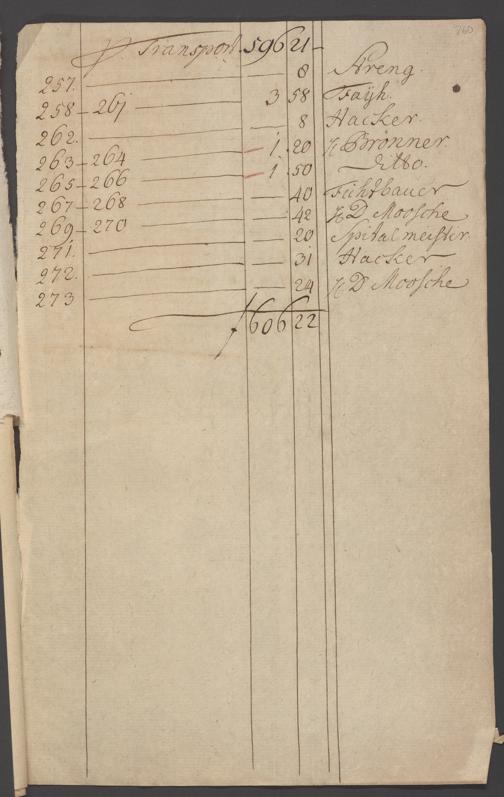 p. Transport 596 21
257. — 8 Streng.
258 – 261 — 3 58 Faÿh.
262. — 8 Hacker.
263 – 264 — 1. 20 Brönner.
265 – 266 — 1. 50 ditto.
267 – 268 — 40 Fuhrbauer
269 – 270 — 42 D. Moosche
271. — 20 Spitalmeister
272. — 31 Hacker
273 — 24 D Moosche
f 606 22